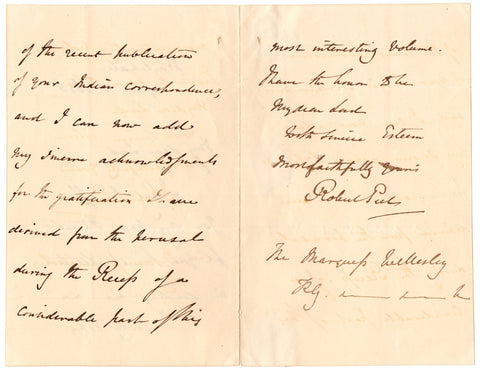 of the recent publication
of your Indian correspondence,
and I can now add
my sincere acknowledgments
for the gratification I have
derived from the perusal
during the Recess of a
considerable part of this
most interesting volume.
I have the honor to be
My dear Lord
With sincere Esteem
Most faithfully yours
Robert Peel
The Marquess Wellesley
K.G.